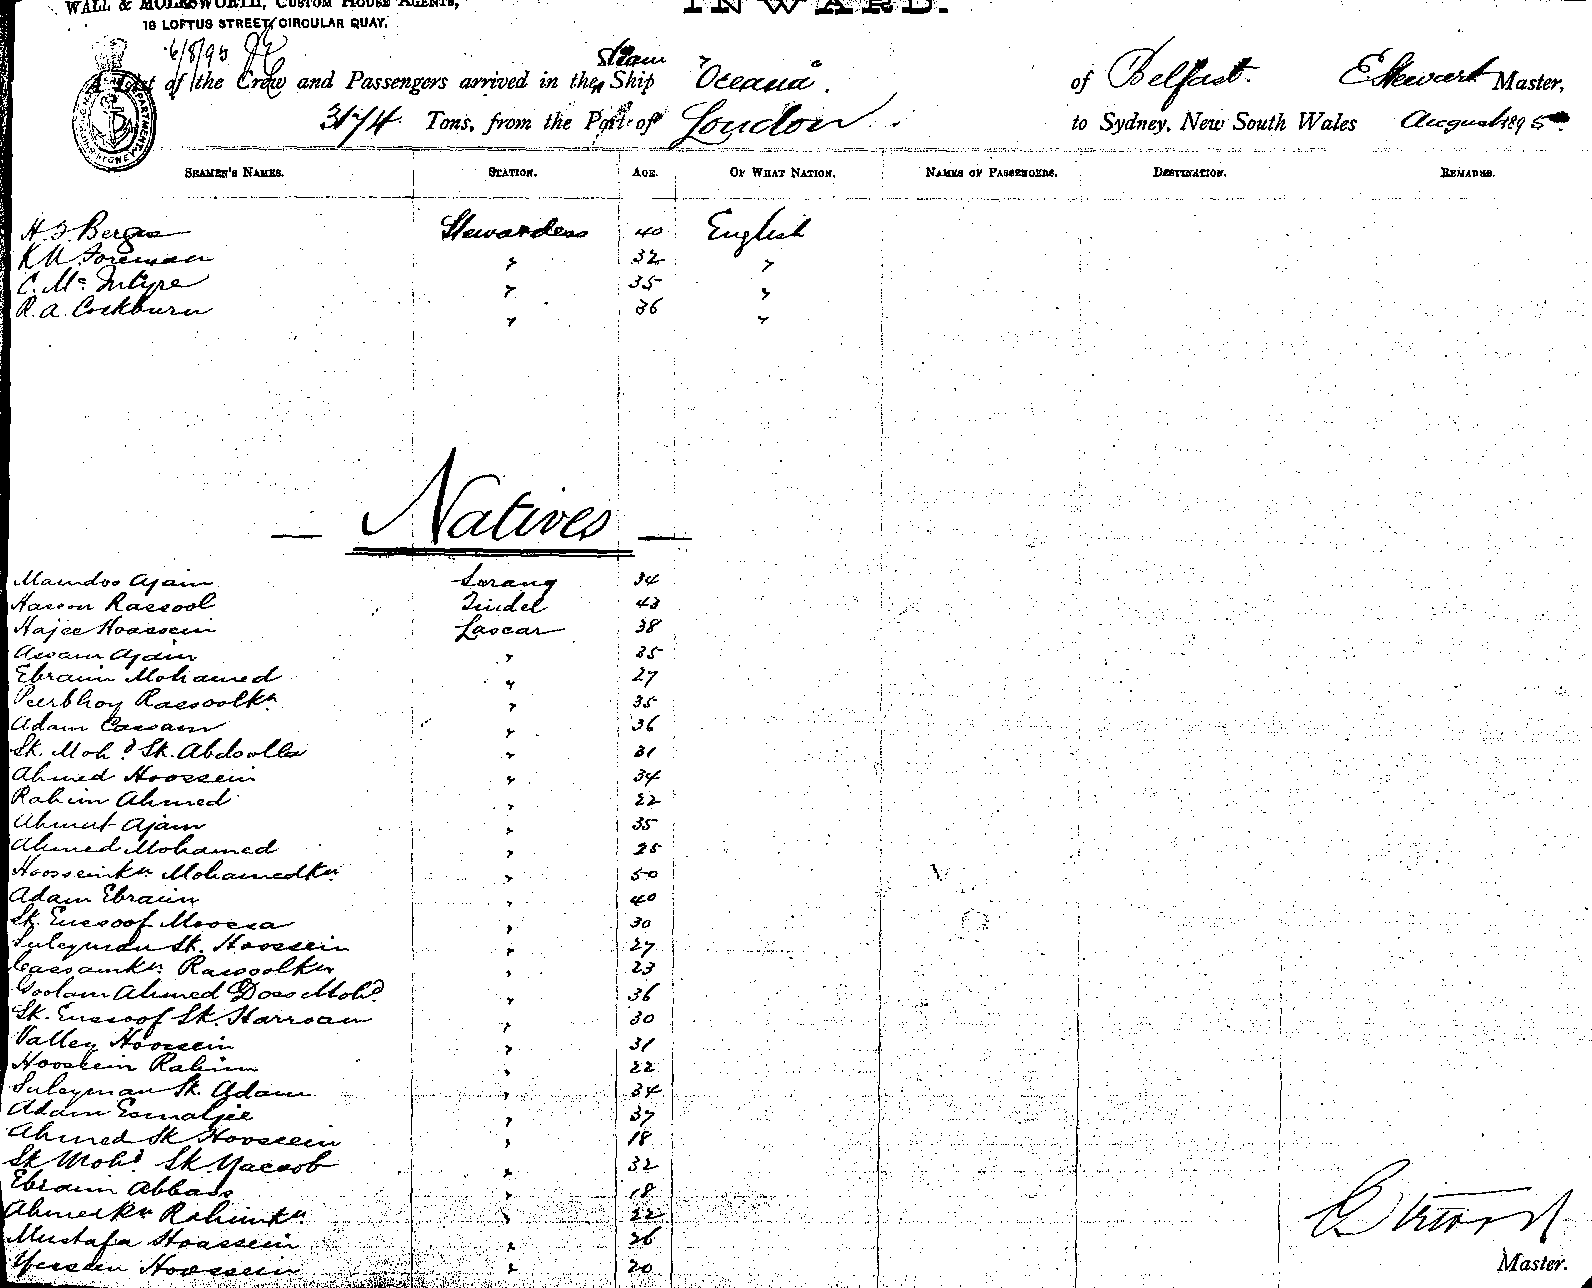 WALL & MOLESWORTH, CUSTOM HOUSE AGENTS,
INWARD.
16 LOFTUS STREET, CIRCULAR QUAY.
6/8/95
Steam
A List of the Crew and Passengers arrived in the Ship "Oceana" of Belfast. E Stewart Master,
3174 Tons, from the Port of London to Sydney, New South Wales August 1895
SEAMEN'S NAMES. STATION. AGE. OF WHAT NATION. NAMES OF PASSENGERS. DESTINATION. REMARKS.
H Berges Stewardess 40 English
K M Foreman " 32 "
C. Mc Intyre " 35 "
R. A. Cockburn " 36 "
Natives
Mamdoo Ajam Serang 34
Hasson Rassool Tindel 43
Hajee Hoossein Lascar 38
Assam Ajam " 35
Ebraim Mohamed " 27
Peerbhoy Rassoolkn " 35
Adam Cassam " 36
Sk. Mohd Sk. Abdoolla " 31
Ahmed Hoossein " 34
Rahim Ahmed " 22
Ahmut Ajam " 35
Ahmed Mohamed " 25
Hoosseinkn Mohamedkn " 50
Adam Ebraim " 40
Sk. Eussoof Moossa " 30
Suleyman Sk. Hoossein " 27
Cassamkn Rassoolkn " 23
Goolam Ahmed Doss Mohd " 36
Sk. Eussoof Sk. Harroan " 30
Valley Hoossein " 31
Hoossein Rahim " 22
Suleyman Sk. Adam " 34
Adam Esmaljee " 37
Ahmed Sk Hoossein " 18
Sk Mohd Sk Yacoob " 32
Ebraim Abbass " 18
Ahmedkn Rahimkn " 22
Mustafa Hoossein " 26
Hoossein " 20
Master.